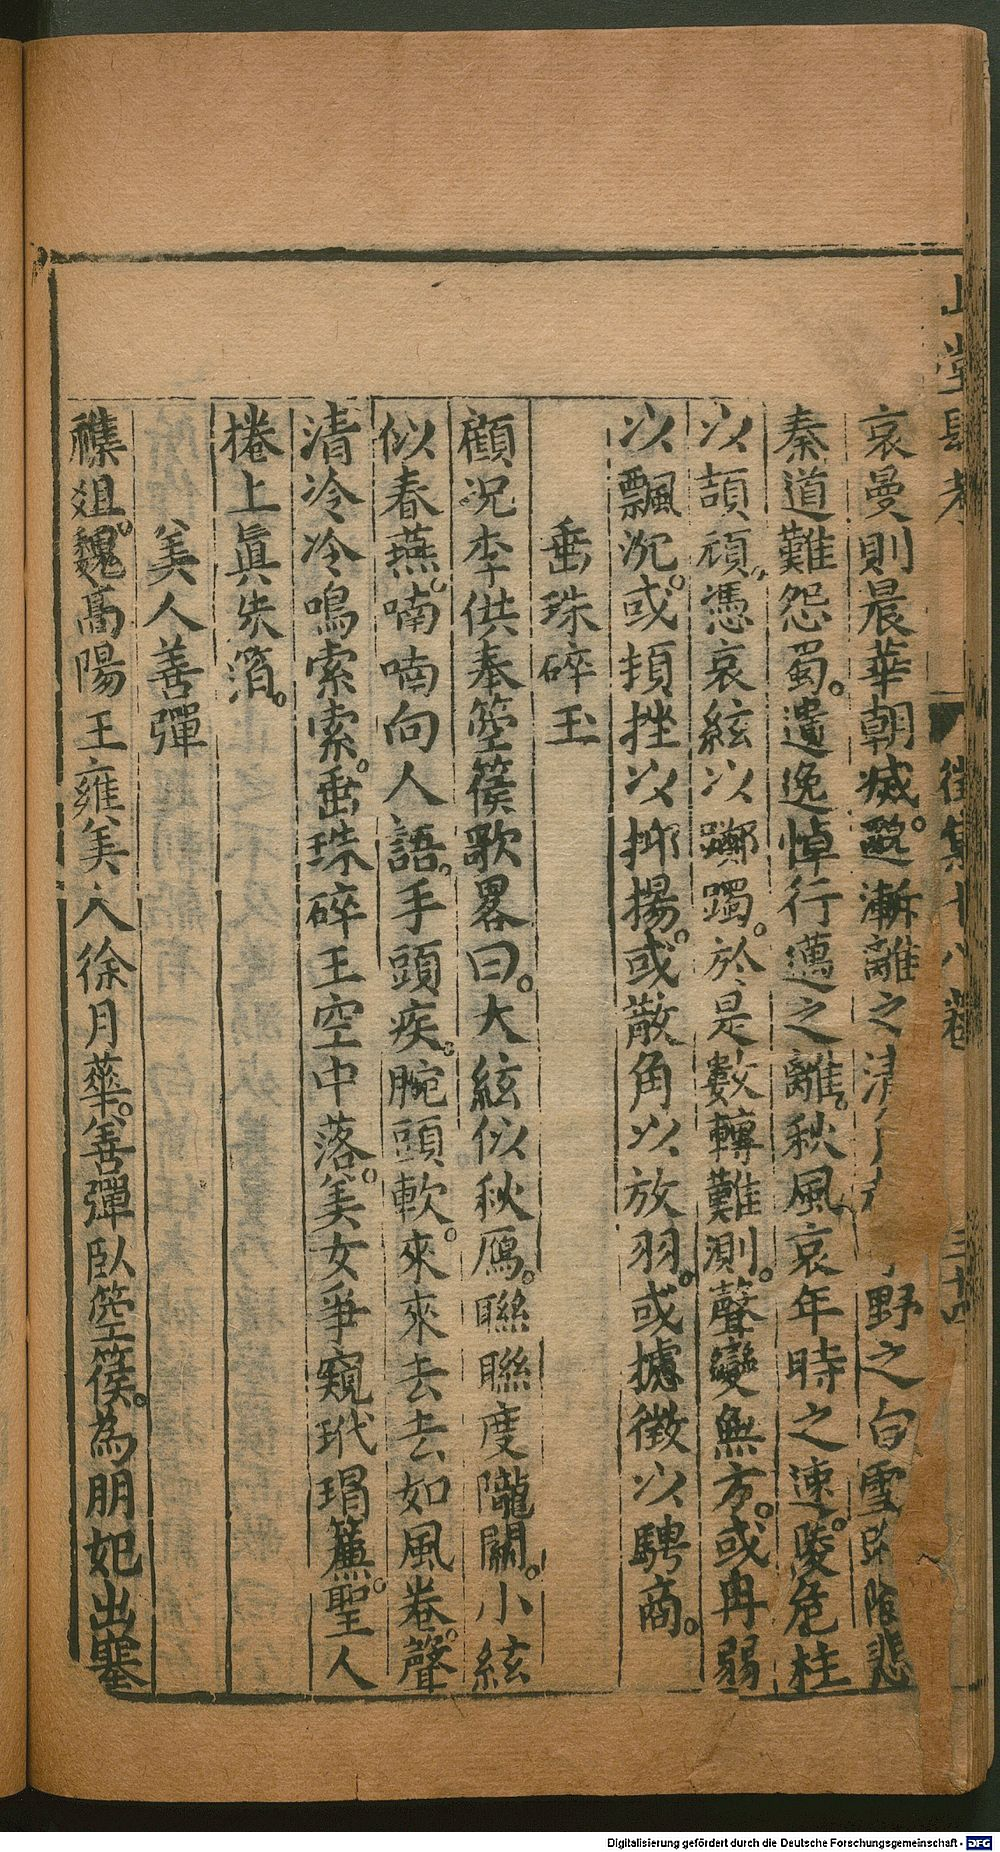 山堂肆考 徵集十八卷 三十四
哀曼則晨華朝滅。西漸離之清 野之白雪 悲
秦道難怨蜀。遺逸悼行邁之離。秋風哀年時之速。陵危柱
以頡頏。憑哀絃以躑躅。於是數轉難測。聲變無方。或冉弱
以飄沉。或頓挫以抑揚。或散角以放羽。或攄徵以騁商。
垂珠碎玉
顧況李供奉箜篌歌畧曰。大絃似秋鴈。聯聯度隴關。小絃
似春燕。喃喃向人語。手頭疾。腕頭軟。來來去去如風卷。聲
清冷冷鳴索索。垂珠碎王空中落。美女爭窺玳瑁簾。聖人
捲上眞朱箔。
美人善彈
襍爼。魏高陽王雍美人徐月華。善彈臥箜篌。為明妃出塞
Digitalisierung gefördert durch die Deutsche Forschungsgemeinschaft - DFG